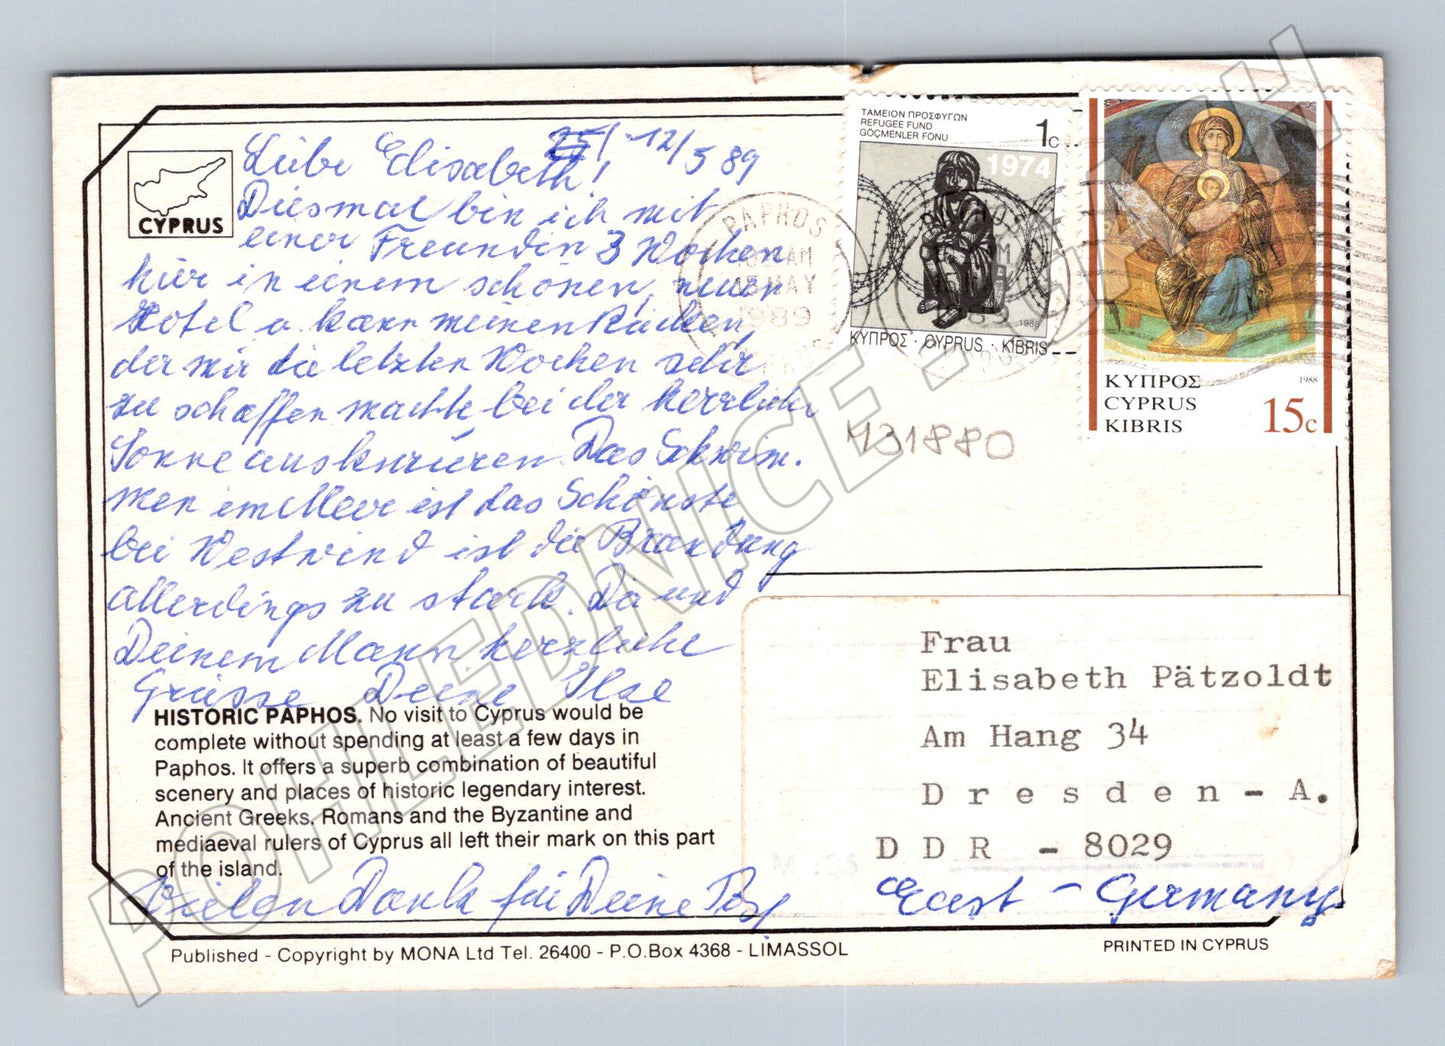 CYPRUS
25/ 12/5 89
Liebe Elisabeth!
Diesmal bin ich mit
einer Freundin 3 Wochen
hier in einem schönen, neuen
Hotel u. kann meinen Rücken,
der mir die letzten Wochen sehr
zu schaffen machte bei der herrlichen
Sonne auskurieren. Das Schwim-
men im Meer ist das Schönste
bei Westwind ist die Brandung
allerdings zu stark. Dir und
Deinem Mann herzliche
Grüsse Deine Ilse
HISTORIC PAPHOS. No visit to Cyprus would be
complete without spending at least a few days in
Paphos. It offers a superb combination of beautiful
scenery and places of historic legendary interest.
Ancient Greeks, Romans and the Byzantine and
mediaeval rulers of Cyprus all left their mark on this part
of the island.
Vielen Dank für Deine
Published - Copyright by MONA Ltd Tel. 26400 - P.O.Box 4368 - LIMASSOL
PRINTED IN CYPRUS
PAPHOS
AM
MAY
1989
ΤΑΜΕΙΟΝ ΠΡΟΣΦΥΓΩΝ
REFUGEE FUND
GÖÇMENLER FONU
1c
1974
1988
ΚΥΠΡΟΣ · CYPRUS · KIBRIS
ΚΥΠΡΟΣ
CYPRUS
KIBRIS
1988
15c
431880
Frau
Elisabeth Pätzoldt
Am Hang 34
Dresden - A.
DDR - 8029
East - Germany
POHLEDNICE - CASH